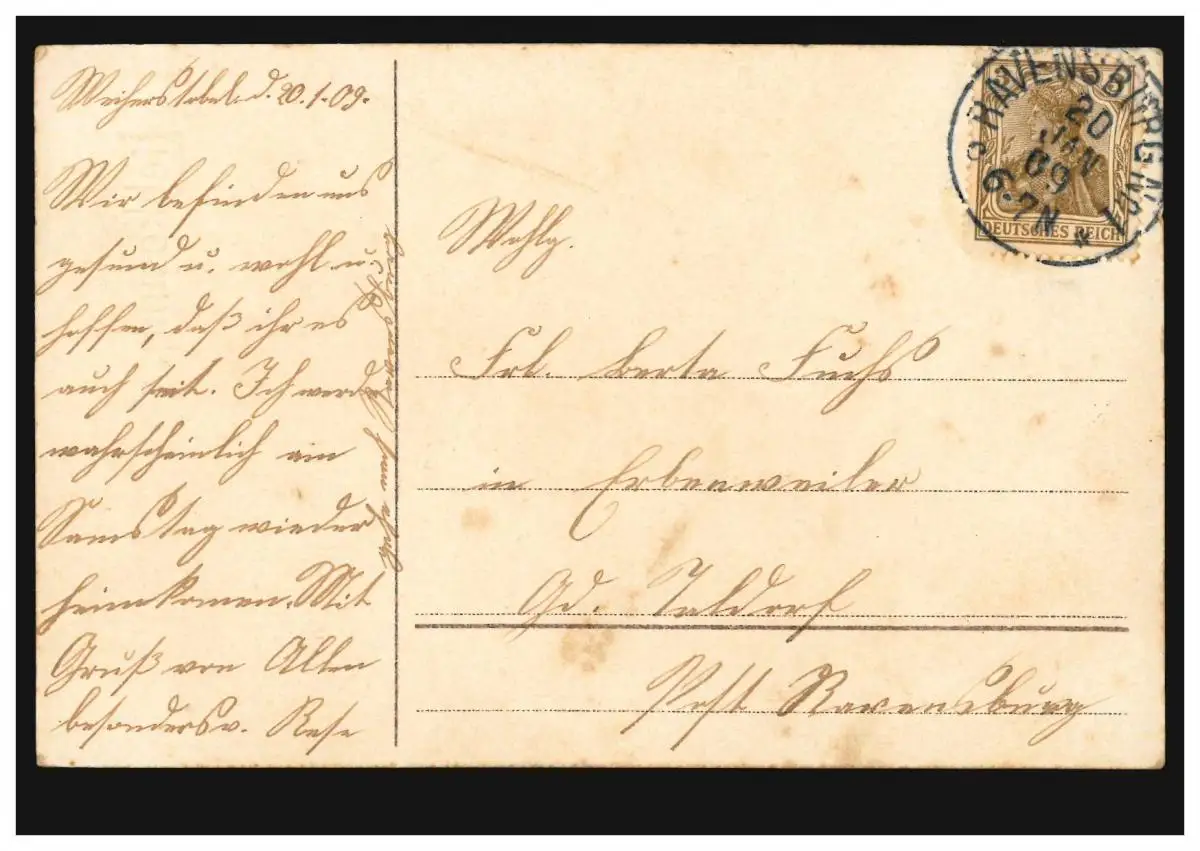 Weiherstobel. d. 20.1.09.
Wir befinden uns
gesund u. wohl u.
hoffen, daß ihr es
auch seit. Ich werde
wahrscheinlich am
Samstag wieder
heimkomen. Mit
Gruß von Allen
besonders v. Rese
RAVENSBURG No 1
20
JAN
09
6-7N
DEUTSCHES REICH
Wohlg.
Frl. Berta Fuchs
in Erbenweiler
Gd. Taldorf
Post Ravensburg